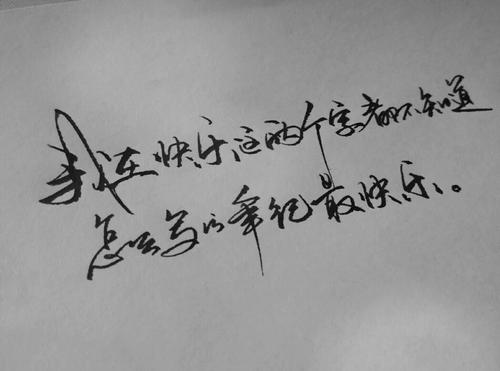 我在快乐这两个字都不知道
怎么写的年纪最快乐。